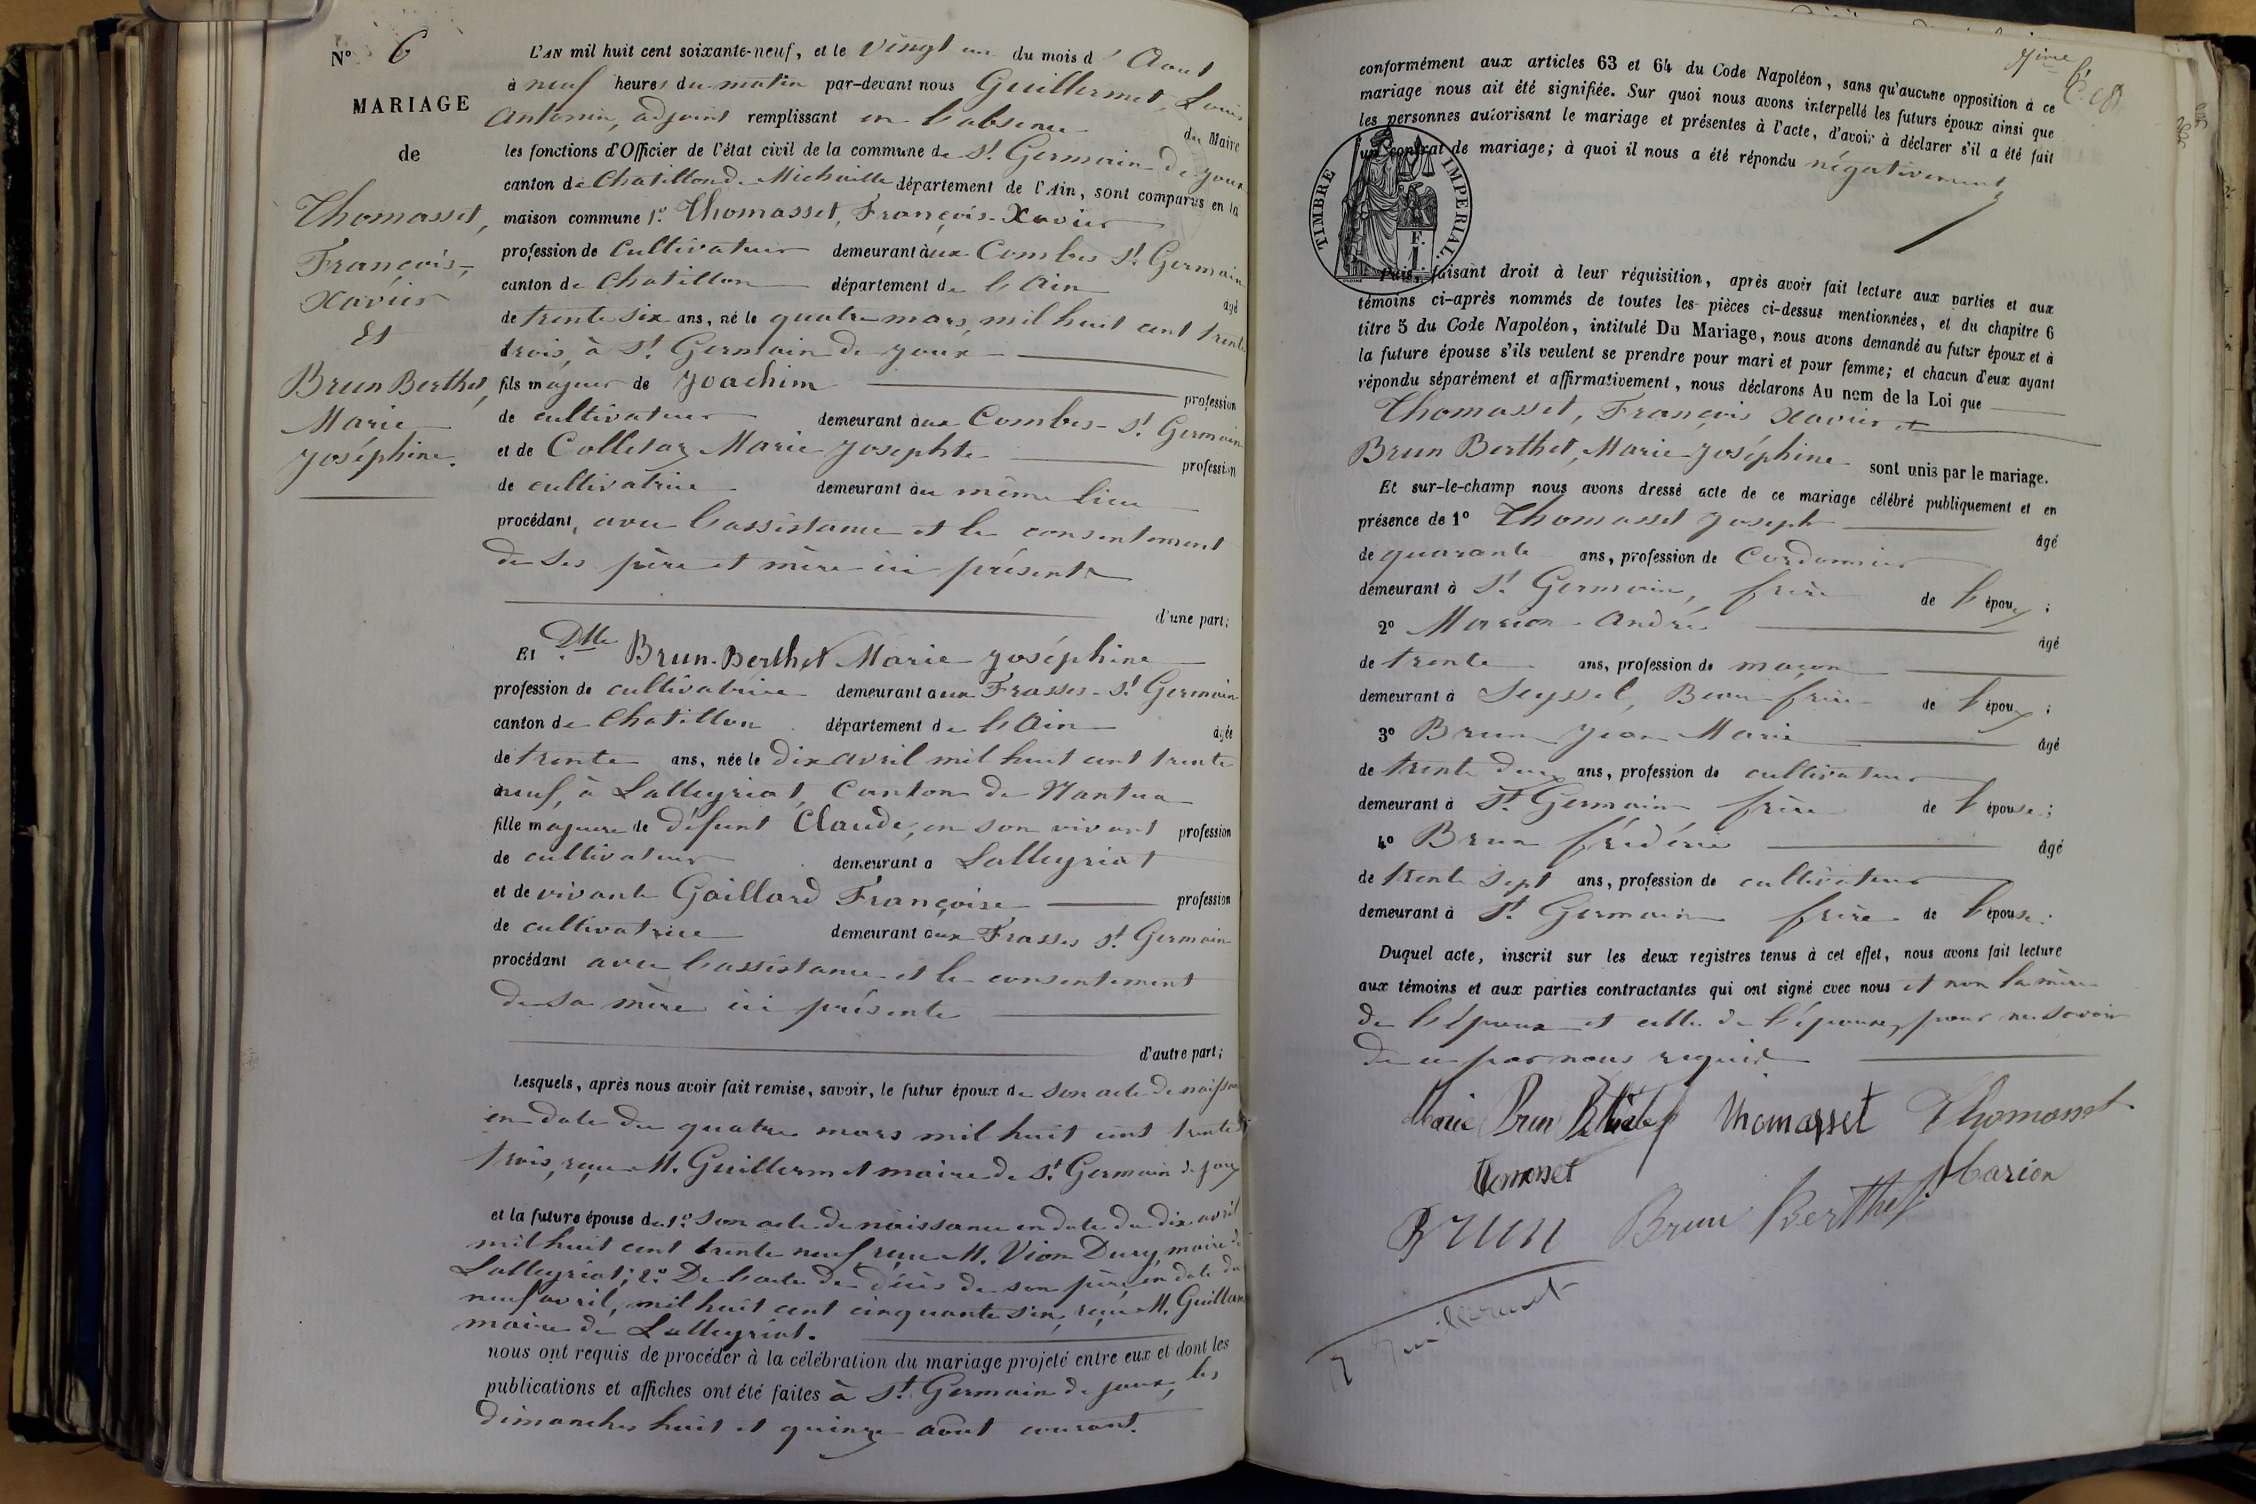 N° 6
MARIAGE
de
Thomasset,
François-
Xavier
Et
Brun Berthet,
Marie
Joséphine.
L'AN mil huit cent soixante-neuf, et le vingt un du mois d'Aout
à neuf heures du matin par-devant nous Guillermet, Louis
Antonin, adjoint remplissant en l'absence du Maire
les fonctions d'Officier de l'état civil de la commune de St Germain de Joux
canton de Chatillon de Michaille département de l'Ain, sont comparus en la
maison commune 1° Thomasset, François-Xavier
profession de cultivateur demeurant aux Combes St Germain
canton de Chatillon département de l'Ain âgé
de trente six ans, né le quatre mars, mil huit cent trente
trois, à St Germain de Joux
fils majeur de Joachim profession
de cultivateur demeurant aux Combes-St Germain
et de Colletaz Marie Josephte profession
de cultivatrice demeurant au même lieu
procédant, avec l'assistance et le consentement
de ses père et mère ici présents
d'une part;
Et Dlle Brun-Berthet Marie Joséphine
profession de cultivatrice demeurant aux Frasses-St Germain
canton de Chatillon département de l'Ain âgée
de trente ans, née le dix avril mil huit cent trente
neuf, à Lalleyriat, Canton de Nantua
fille majeure de défunt Claude, en son vivant profession
de cultivateur demeurant à Lalleyriat
et de vivante Gaillard Françoise profession
de cultivatrice demeurant aux Frasses St Germain
procédant avec l'assistance et le consentement
de sa mère ici présente
d'autre part;
Lesquels, après nous avoir fait remise, savoir, le futur époux de son acte de naissance
en date du quatre mars mil huit cent trente
trois, reçu M. Guillermet maire de St Germain de Joux
et la future épouse de 1° son acte de naissance en date du dix avril
mil huit cent trente neuf, reçu M. Vion Dury, maire de
Lalleyriat; 2° De l'acte de décès de son père, en date du
neuf avril, mil huit cent cinquante six, reçu M. Guillon
maire de Lalleyriat.
nous ont requis de procéder à la célébration du mariage projeté entre eux et dont les
publications et affiches ont été faites à St Germain de Joux, les
dimanches huit et quinze août courant.
conformément aux articles 63 et 64 du Code Napoléon, sans qu'aucune opposition à ce
mariage nous ait été signifiée. Sur quoi nous avons interpellé les futurs époux ainsi que
les personnes autorisant le mariage et présentes à l'acte, d'avoir à déclarer s'il a été fait
un contrat de mariage; à quoi il nous a été répondu négativement
TIMBRE IMPERIAL.
Puis, faisant droit à leur réquisition, après avoir fait lecture aux parties et aux
témoins ci-après nommés de toutes les pièces ci-dessus mentionnées, et du chapitre 6
titre 5 du Code Napoléon, intitulé Du Mariage, nous avons demandé au futur époux et à
la future épouse s'ils veulent se prendre pour mari et pour femme; et chacun d'eux ayant
répondu séparément et affirmativement, nous déclarons Au nom de la Loi que
Thomasset, François Xavier et
Brun Berthet, Marie Joséphine sont unis par le mariage.
Et sur-le-champ nous avons dressé acte de ce mariage célébré publiquement et en
présence de 1° Thomasset Joseph âgé
de quarante ans, profession de Cordonnier
demeurant à St Germain, frère de l'époux;
2° Marion André âgé
de trente ans, profession de maçon
demeurant à Seyssel, Beau-frère de l'époux;
3° Brun Jean Marie âgé
de trente deux ans, profession de cultivateur
demeurant à St Germain frère de l'épouse;
4° Brun frédéric âgé
de trente sept ans, profession de cultivateur
demeurant à St Germain frère de l'épouse.
Duquel acte, inscrit sur les deux registres tenus à cet effet, nous avons fait lecture
aux témoins et aux parties contractantes qui ont signé avec nous et non la mère
de l'époux et celle de l'épouse, pour ne savoir
de ce par nous requis
Marie Brun Berthet Thomasset Thomasset
Tomasset Marion
BRUN Brun Berthet
Guillermet